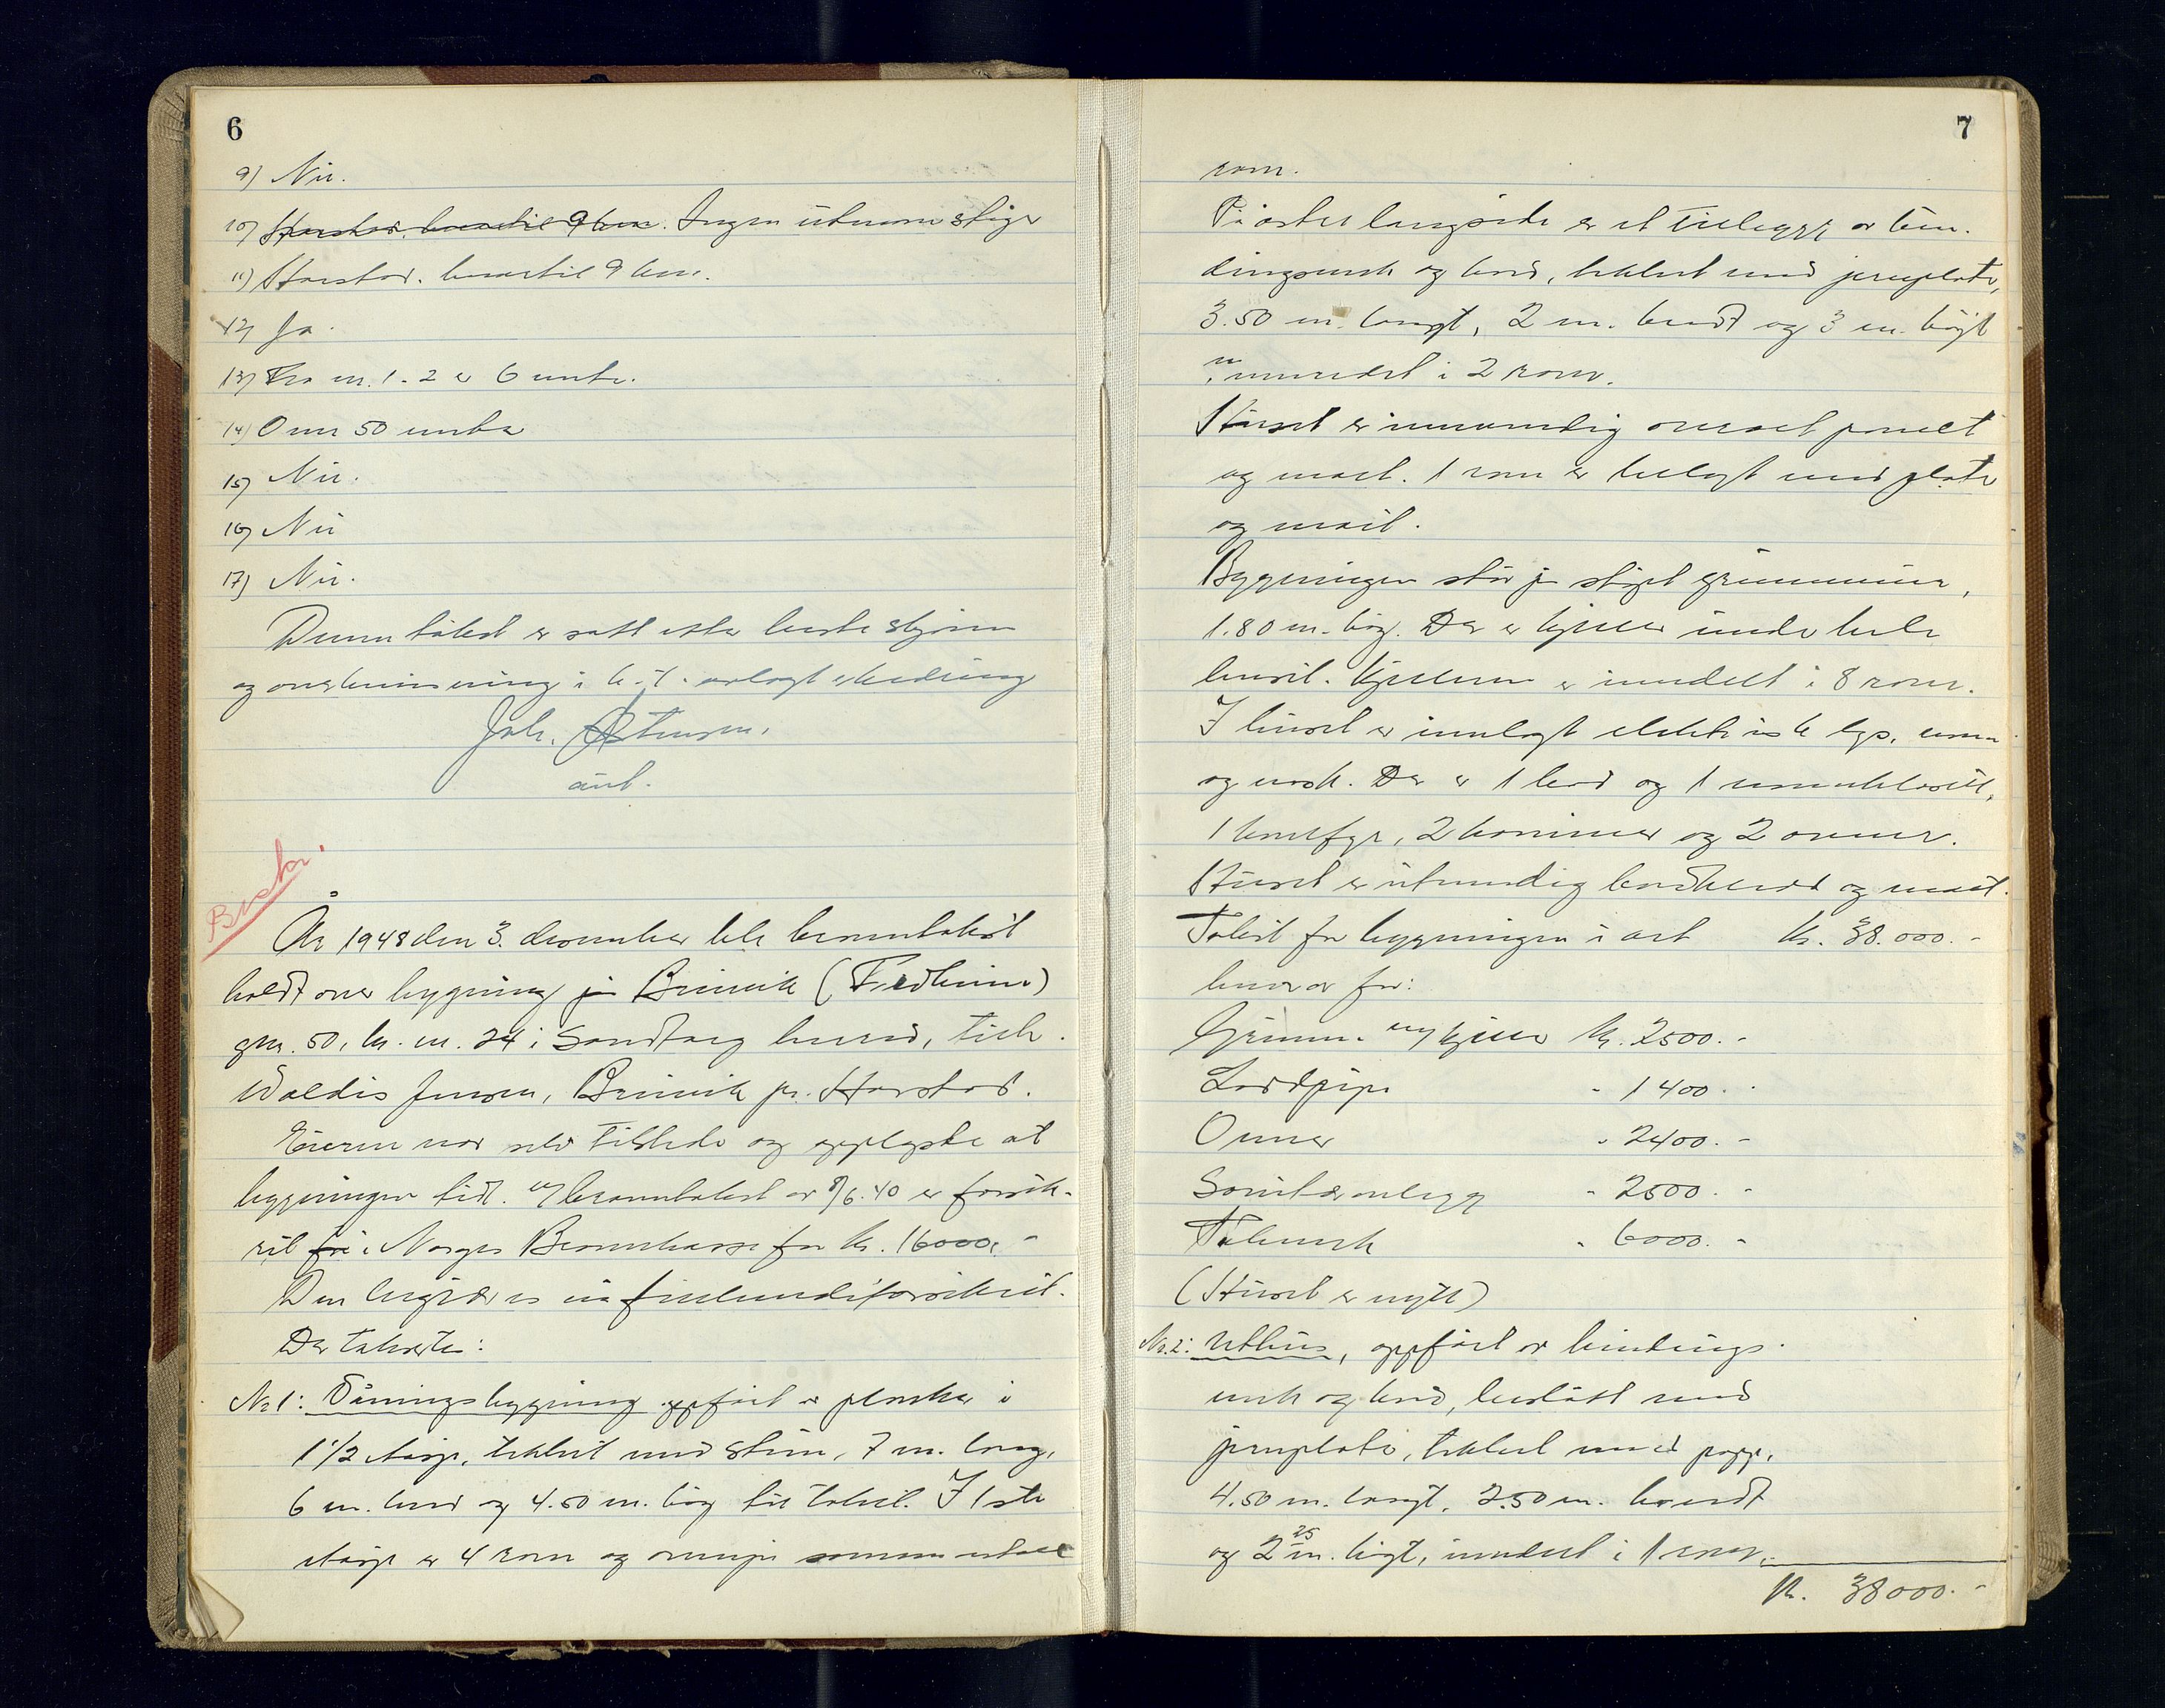 6
9) Nei.
10) Harstad, havnetil 9 km. Ingen utvaven stiger
11) Harstad. havnetil 9 km.
12) Ja.
13) Fra nr. 1-2 er 6 meter.
14) Over 50 meter
15) Nei.
16) Nei
17) Nei.
Denne takst er satt etter beste skjønn
og overbevisning i h.t. avlagt erklæring
Joh.
Brekr.
År 1948 den 3. desember ble branntakst
holdt over bygning på Brinvik (Fredheim)
gnr. 50, br. nr. 24 i Sandtorg herred, tilh.
Valdis Jensen, Brinvik pr. Harstad.
Eieren var selv tilstede og opplyste at
bygningen tidl. e/ branntakst av 8/6.40 er forsik-
ret i Norges Brannkasse for kr. 16000,-
Den begjæres nå fullverdiforsikret.
Der takserte:
Nr 1: Våningsbygning oppført av planker i
1 1/2 etasje, tekket med stein, 7 m. lang,
6 m. bred og 4.50 m. høg til taket. I 1ste
etasje er 4 rom og ovenpå samme antall
7
rom.
På østre langside er et tillegg av bin-
dingsverk og bord, tekket med jernplater,
3.50 m. langt, 2 m. bredt og 3 m. høgt
innredet i 2 rom.
Huset er innvendig overalt panelt
og malt. 1 rom er belagt med plater
og malt.
Bygningen står på støpt grunnmur,
1.80 m. høg. Der er kjeller under hele
huset. Kjelleren er inndelt i 8 rom.
I huset er innlagt elektrisk lys, vann
og avløp. Der er 1 bad og 1 vannklosett,
1 komfyr, 2 kaminer og 2 ovner.
Huset er utvendig bordkledd og malt.
Takst for bygningen i alt kr. 38.000.-
herav for:
Grunn. og kjeller kr. 2500.-
Laddpipe - 1400.-
Ovner - 2400.-
Sanitæranlegg - 2500.-
Takverk - 6000.-
(Huset er nytt)
Nr. 2: Uthus, oppført av bindings-
verk og bord, beslått med
jernplater, tekket med papp,
4.50 m. langt, 2.50 m. bredt
og 2 25 m. høgt, inndelt i 1 rom.
Kr. 38000.-